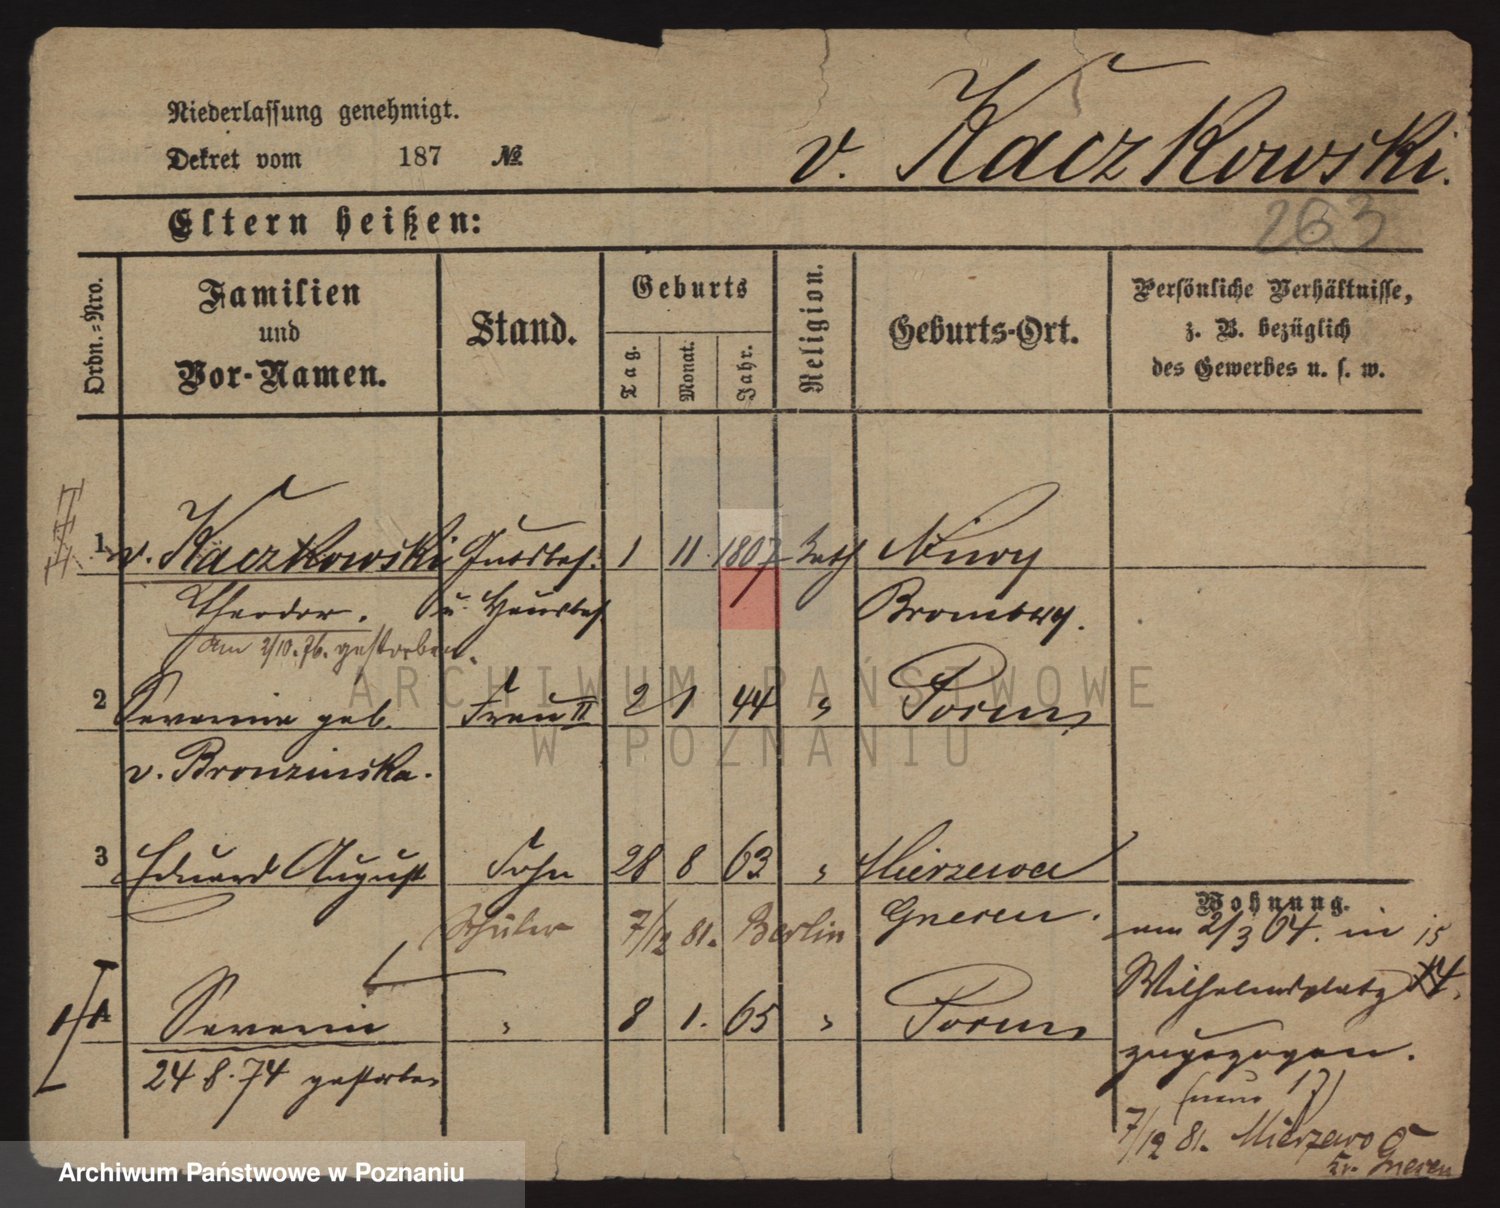 Niederlassung genehmigt.
Dekret vom 187 №
v. Kaczkowski.
263
Eltern heißen:
Ordn.-Nro.
Familien
und
Vor-Namen.
Stand.
Geburts
Tag.
Monat.
Jahr.
Religion.
Geburts-Ort.
Persönliche Verhältnisse,
z. B. bezüglich
des Gewerbes u. s. w.
1 v. Kaczkowski Gutsbes. 1 11. 1807 kath
Theodor. u. Hausbes Bromberg.
am 2/10. 76. gestorben.
2 Severine geb. Frau II 2 1 44 " Posen
v. Bronzinska.
3 Eduard August Sohn 28 8 63 " Mierzewa
Schüler 7/12 81. Berlin Gnesen.
Severin " 8 1. 65 " Posen
24 8. 74 gestorben
Wohnung.
am 2/3 64. in 15
Wilhelmsplatz 14.
zugezogen.
(neue 17)
7/12 81. Mierzewo
Kr. Gnesen
ARCHIWUM PAŃSTWOWE
W POZNANIU
Archiwum Państwowe w Poznaniu